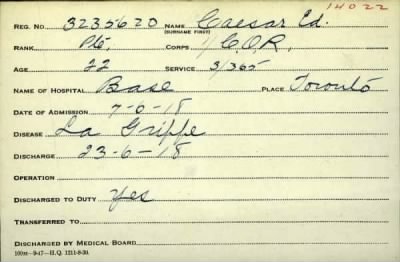 14022
REG. NO. 3235620 NAME Caesar Ed.
(SURNAME FIRST)
RANK Pte. CORPS 1/C.O.R.
AGE 22 SERVICE 3/365
NAME OF HOSPITAL Base PLACE Toronto
DATE OF ADMISSION 7-6-18
DISEASE La Grippe
DISCHARGE 23-6-18
OPERATION
DISCHARGED TO DUTY Yes
TRANSFERRED TO
DISCHARGED BY MEDICAL BOARD
100M-9-17-H.Q. 1211-8-30.